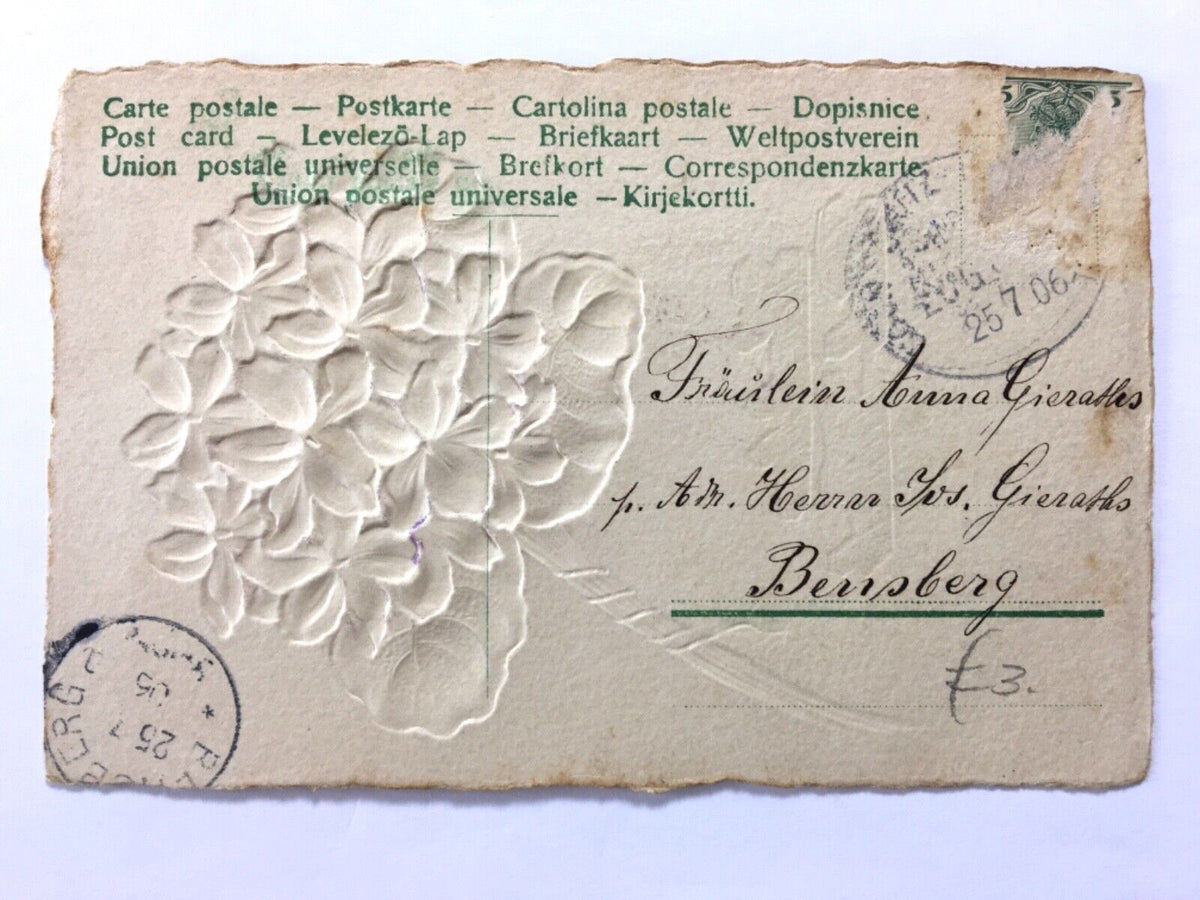 Carte postale — Postkarte — Cartolina postale — Dopisnice
Post card — Levelezõ-Lap — Briefkaart — Weltpostverein
Union postale universelle — Brefkort — Correspondenzkarte
Union postale universale — Kirjekortti.
5 5
25 7 06
Fräulein Anna Gieraths
p. Adr. Herrn Jos. Gieraths
Bensberg
£3.
25 7